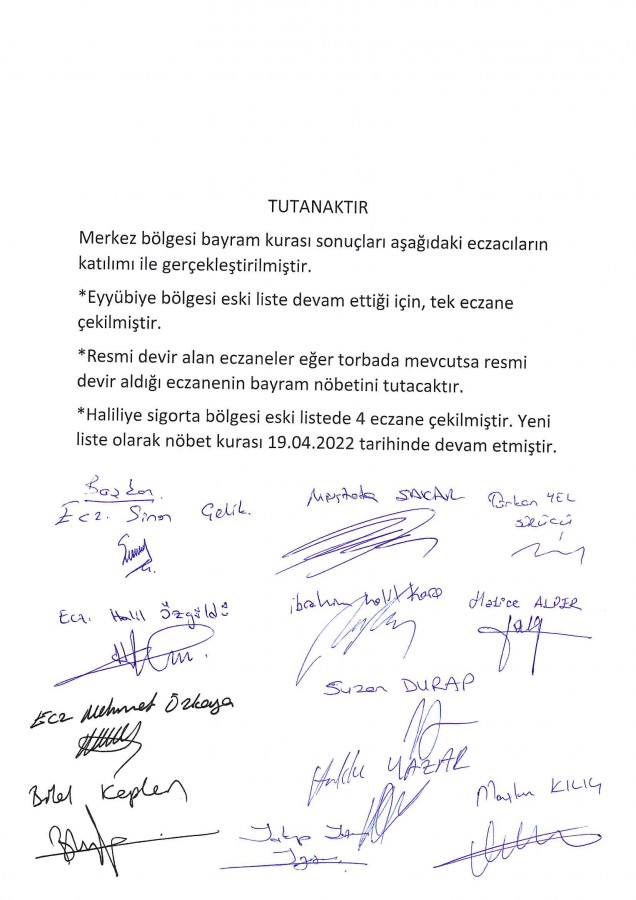 TUTANAKTIR
Merkez bölgesi bayram kurası sonuçları aşağıdaki eczacıların
katılımı ile gerçekleştirilmiştir.
*Eyyübiye bölgesi eski liste devam ettiği için, tek eczane
çekilmiştir.
*Resmi devir alan eczaneler eğer torbada mevcutsa resmi
devir aldığı eczanenin bayram nöbetini tutacaktır.
*Haliliye sigorta bölgesi eski listede 4 eczane çekilmiştir. Yeni
liste olarak nöbet kurası 19.04.2022 tarihinde devam etmiştir.
Başkan
Ecz. Sinan Çelik.
Mustafa SAKAR
Türkan YEL
SÜRÜCÜ
Ecz. Halil Özgüldü
ibrahim halil
Hatice ALPER
Suzan DURAP
Ecz Mehmet Özkaya
YAZAR
Bilal Keplen
KILIÇ